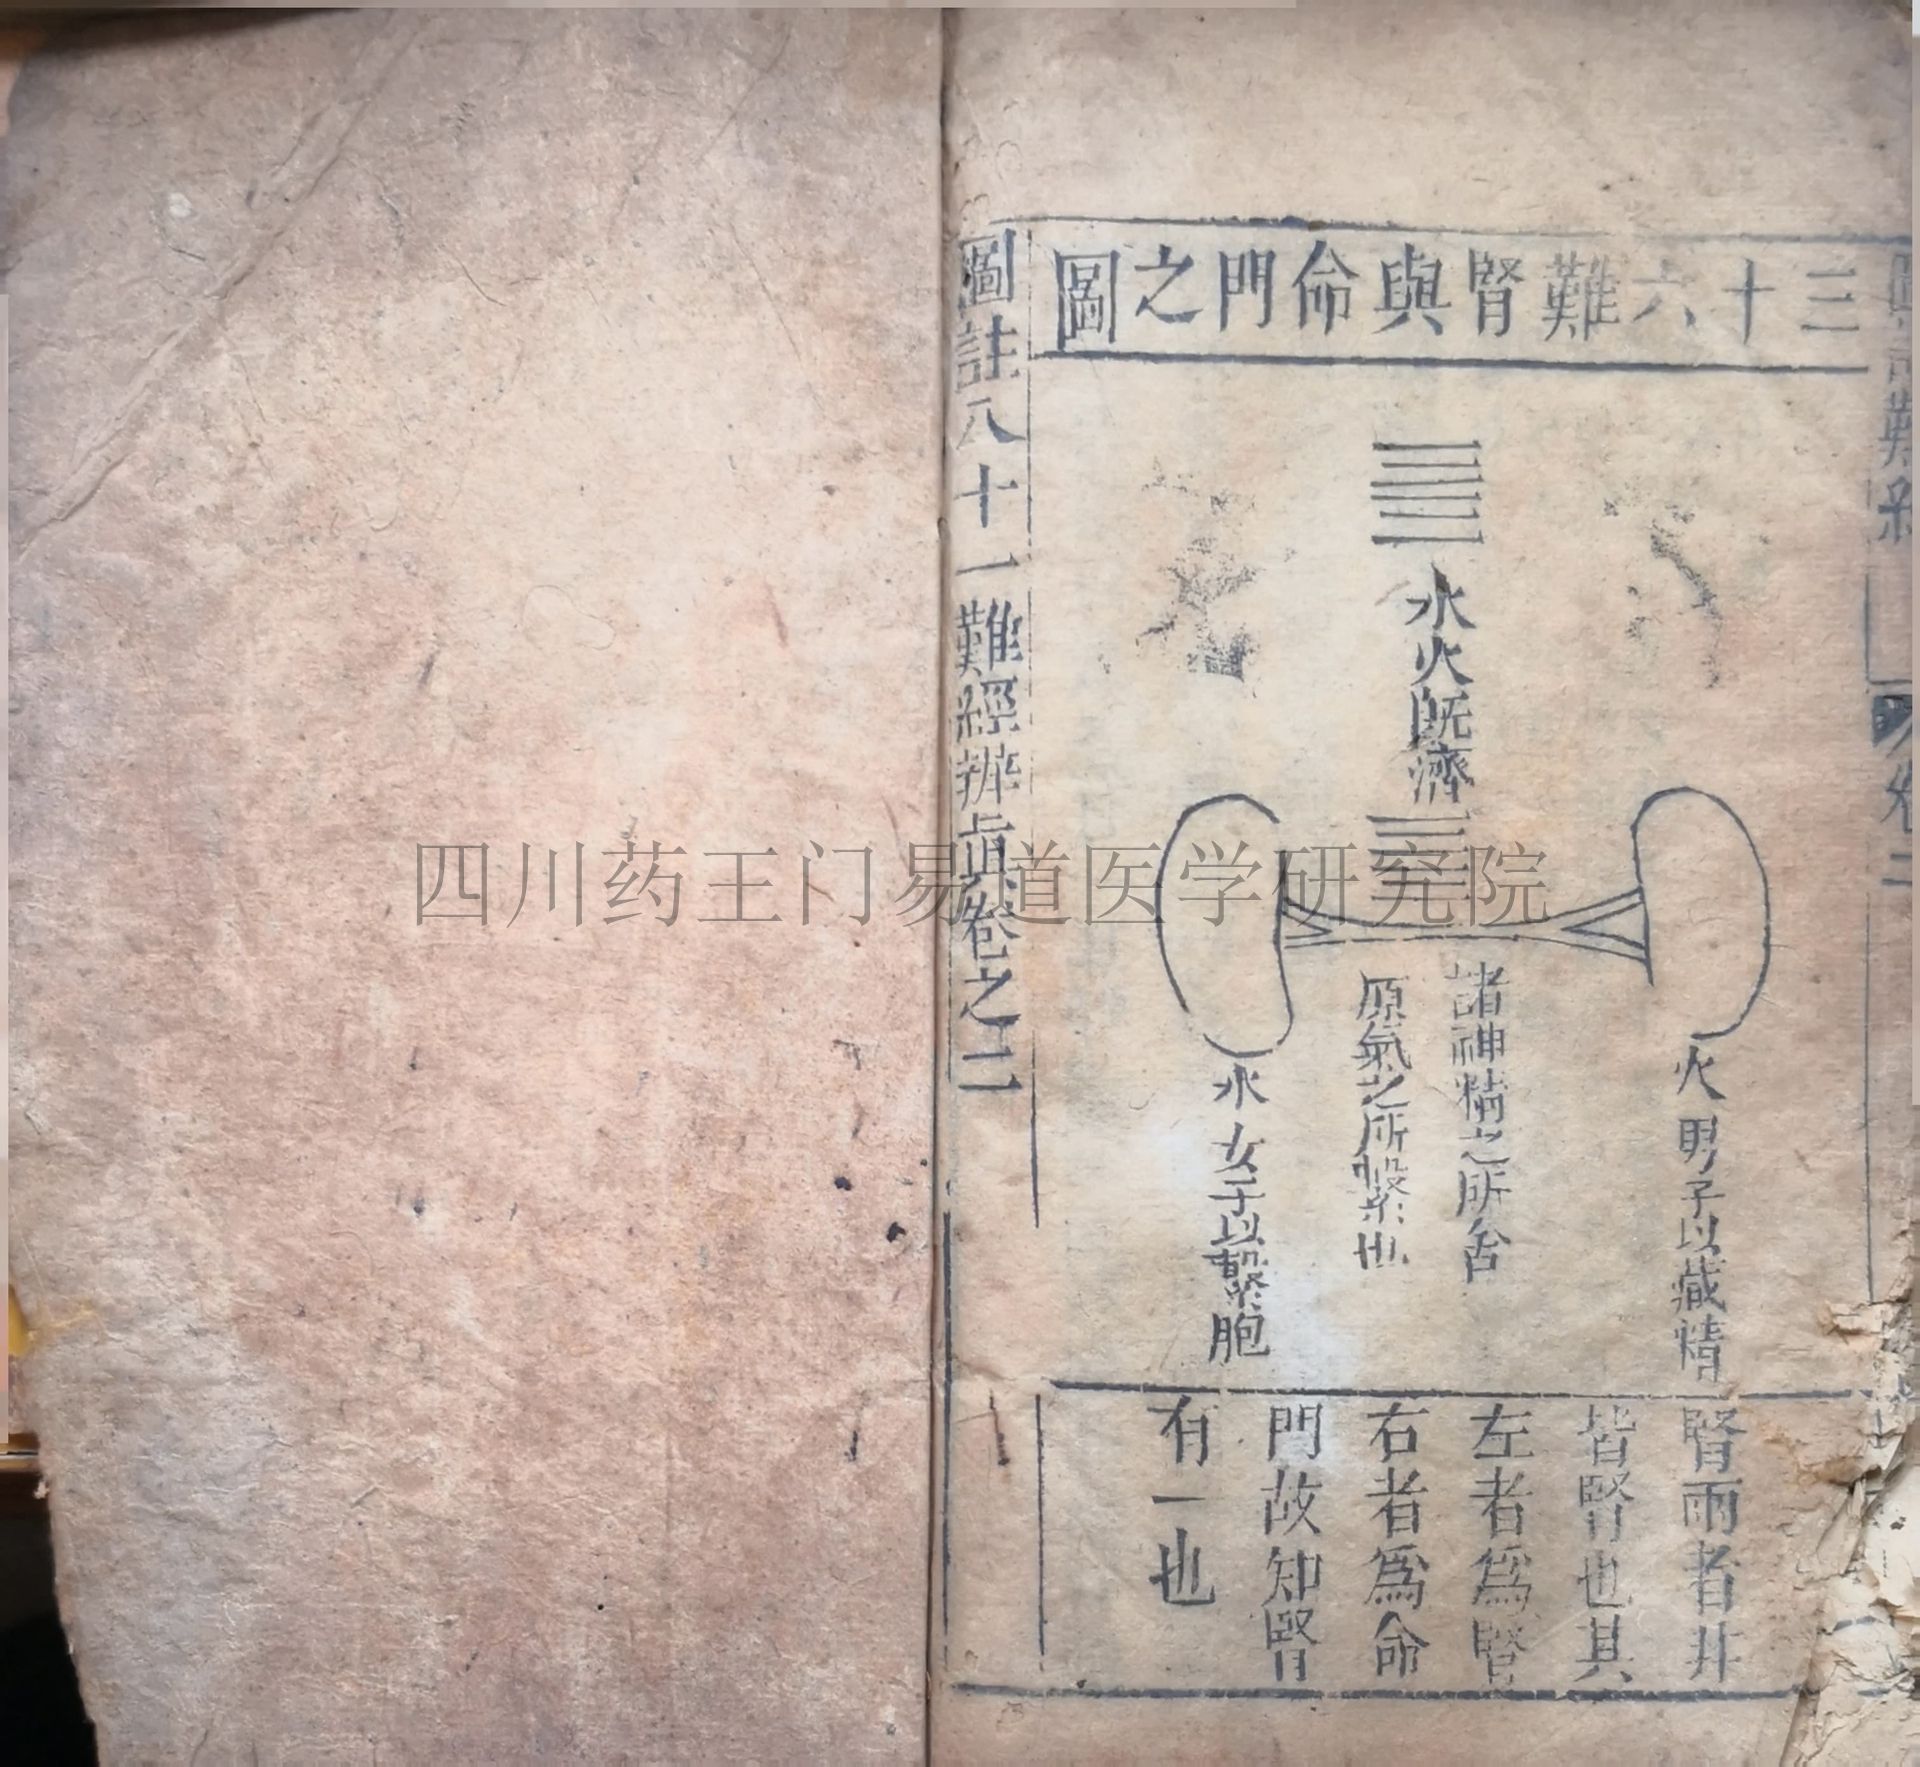 圖註難經 卷二
三十六難腎與命門之圖
水火既濟
火 男子以藏精
諸神精之所舍
原氣之所繫也
水 女子以繫胞
腎兩者非
皆腎也其
左者爲腎
右者爲命
門故知腎
有一也
圖註八十一難經辨眞卷之二
四川药王门易道医学研究院